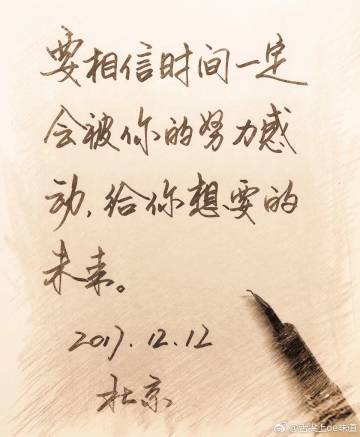 要相信时间一定
会被你的努力感
动,给你想要的
未来。
2017.12.12
杜京
@舌尖上oe味道